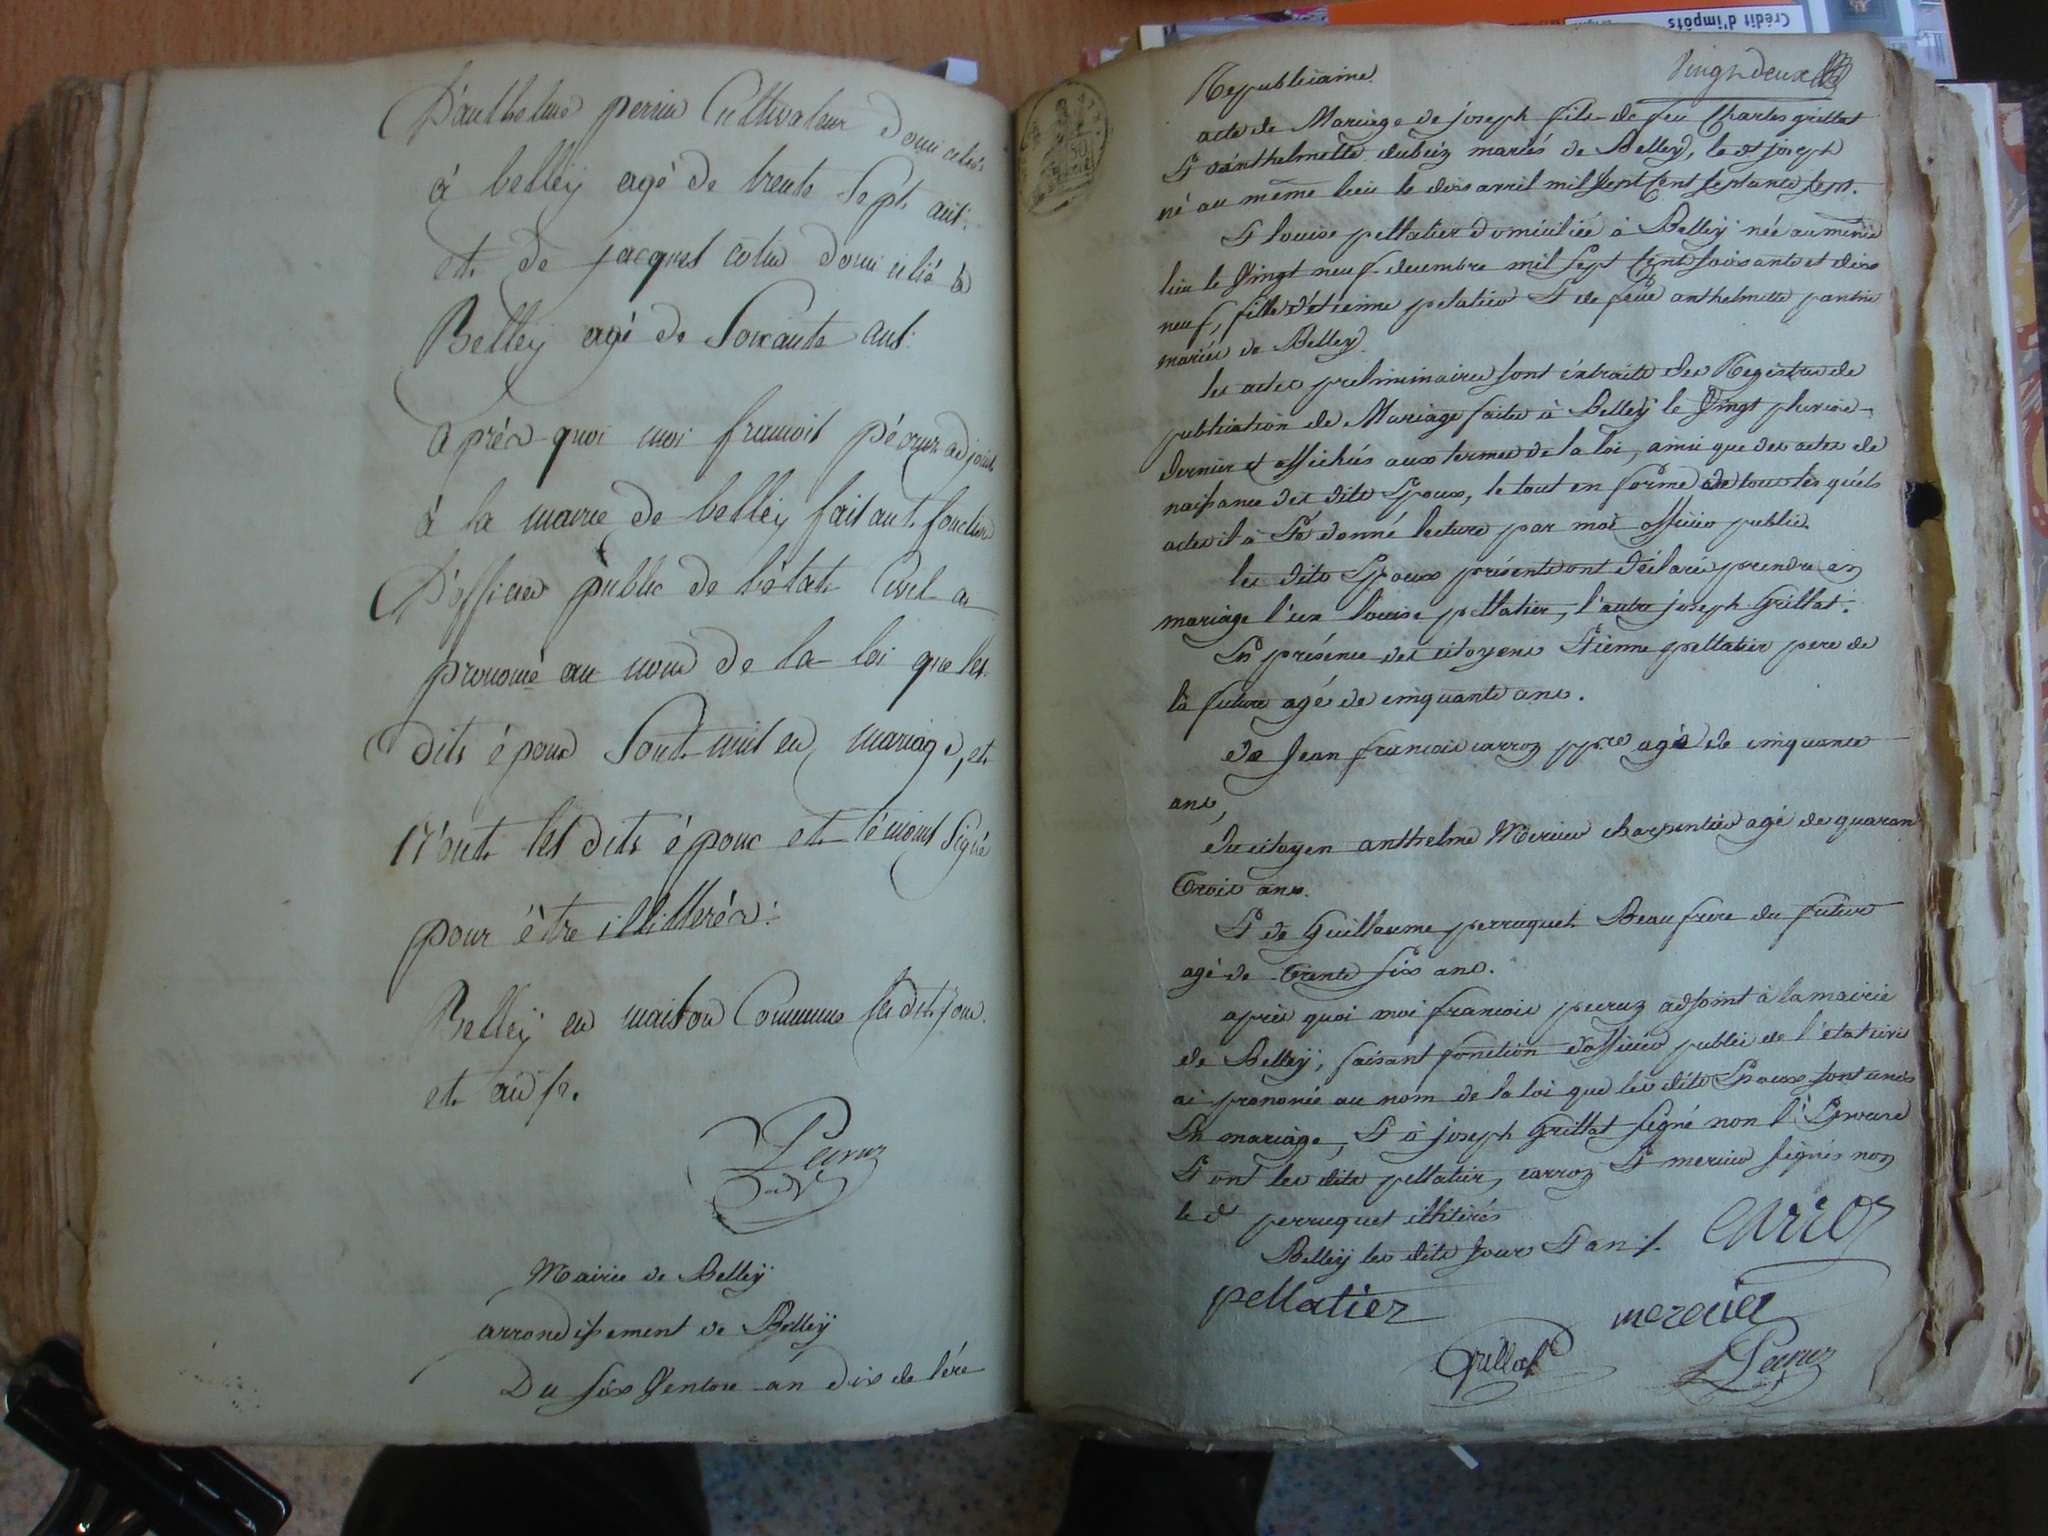 D'anthelme perrin Cultivateur domicilié
à belley agé de trente Sept ans.
et de jacques colin domicilié à
Belley agé de Soixante ans.
après quoi moi francois pécruz adjoint
à la mairie de belley faisant fonction
D'officier public de l'état Civil a
prononcé au nom de la loi que les
dits époux Sont unis en mariage, et
N'ont les dits époux et témoins Signé
pour être illitterés.
Belleÿ en maison Commune les dits jour
et an fr.
Pecruz
adjt
Mairie de Belleÿ
arrondissement de Belleÿ
Du six Ventose an dix de l'ére
Crédit d'impôts
Vingt deux
Republicaine.
acte de Mariage de joseph fils de feu Charles grillat
Et d'anthelmette dubéiz mariés de Belleÿ, le dt joseph
né au même lieu le dix avril mil sept Cent septante sept.
Et louise pellatier domiciliée à Belleÿ née au même
lieu le Vingt neuf decembre mil sept Cent soixante et dix
neuf, fille d'etienne pelatier Et de feue anthelmette pantin
mariés de Belleÿ.
les actes preliminaires sont extraits des Registres de
publication de Mariage faites à Belleÿ le Vingt pluviose
dernier et affichés aux termes de la loi, ainsi que des actes de
naissance des dits Epoux, le tout en forme de tous les quels
actes il à Eté donné lecture par moi officier public.
les dits Epoux présents ont déclaré prendre en
mariage l'un louise pellatier, l'autre joseph Grillat.
En présence des citoyens Etienne pellatier pere de
la future agé de cinquante ans.
de Jean francois carroz ppre agé de cinquante
ans,
du citoyen anthelme Mercier charpentier agé de quaran
trois ans.
Et de Guillaume perruquet Beau frere du futur
agé de trente six ans.
après quoi moi francois pecruz adjoint à la mairie
de Belleÿ, faisant fonction d'officier public de l'etat civil
ai prononcé au nom de la loi que les dits Epoux sont unis
En mariage, Et à joseph Grillat signé non l'Epouse
Et ont les dits pellatier, carroz Et mercier signés non
le d perruquet illitérés
Belleÿ les dits jour Et an
carroz
pellatier
mercier
Grillat
Pecruz